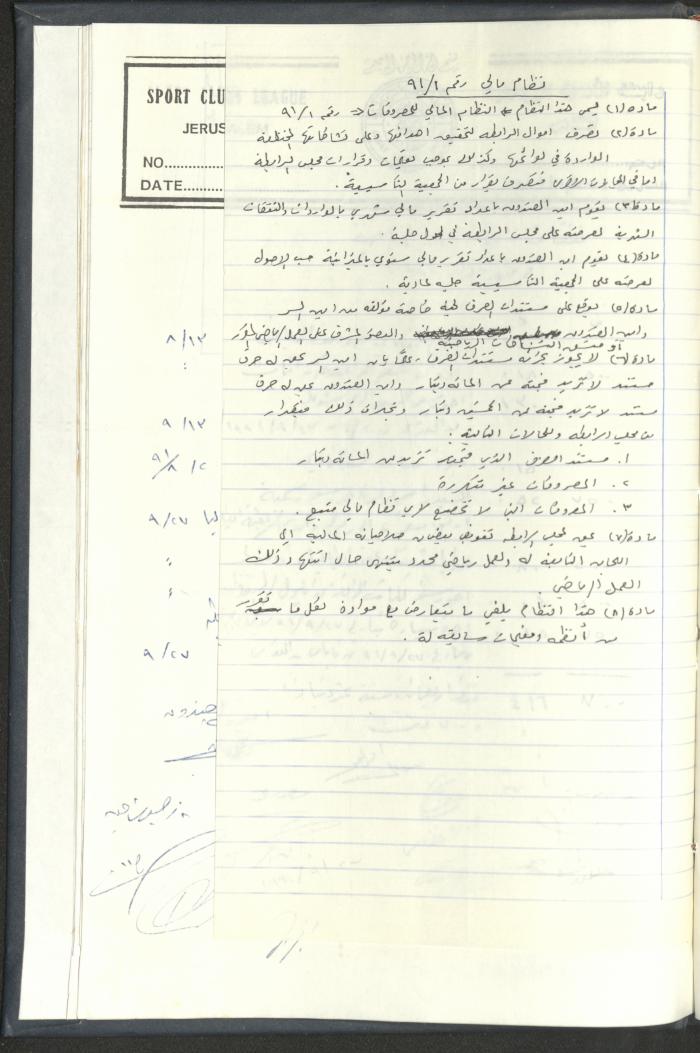 SPORT CLU
JERUS
NO.
DATE
نظام مالي رقم ٩١/١
مادة (١) يسمى هذا النظام النظام المالي للمصروفات رقم ٩١/١
مادة (٢) تصرف اموال الرابطة لتحقيق اهدافها وعلى نشاطاتها المختلفة
الواردة في لوائحها وكذلك بموجب تعليمات وقرارات مجلس الرابطة
اما في الحالات الاخرى فتصرف بقرار من الجمعية التأسيسية .
مادة (٣) يقوم امين الصندوق باعداد تقرير مالي شهري بالواردات والنفقات
الشهرية لعرضه على مجلس الرابطة في اول جلسة .
مادة (٤) يقوم امين الصندوق باعداد تقرير مالي سنوي بالميزانية حسب الاصول
لعرضه على الجمعية التأسيسية جلسة عادية .
مادة (٥) يوقع على مستندات الصرف لجنة خاصة مؤلفه من امين السر
وامين الصندوق والعضو المشرف على العمل الرياضي المقرر
او منسق النشاطات الرياضية
مادة (٦) لا يجوز تجزئة مستندات الصرف ، علماً بان امين السر يحق له صرف
مستند لا تزيد قيمته عن المائة دينار وامين الصندوق يحق له صرف
مستند لا تزيد قيمته عن الخمسين دينار
من مجلس الرابطه وللحالات التالية :
١. مستند الصرف الذي قيمته تزيد عن المائة دينار
٢. المصروفات غير متكررة
٣. المصروفات التي لا تخضع لاي نظام مالي متبع .
مادة (٧) يحق لمجلس الرابطه تفويض بعض من صلاحياته المالية الى
اللجان التابعة له ولعمل رياضي محدد ينتهي حال انتهاء ذلك
العمل الرياضي .
مادة (٨) هذا النظام يلغي ما يتعارض مع مواده لكل ما تقرر
من أنظمه وتعليمات سابقة له .
٨/١٣
٩/١٣
٩/٢٧
٩/٢٧